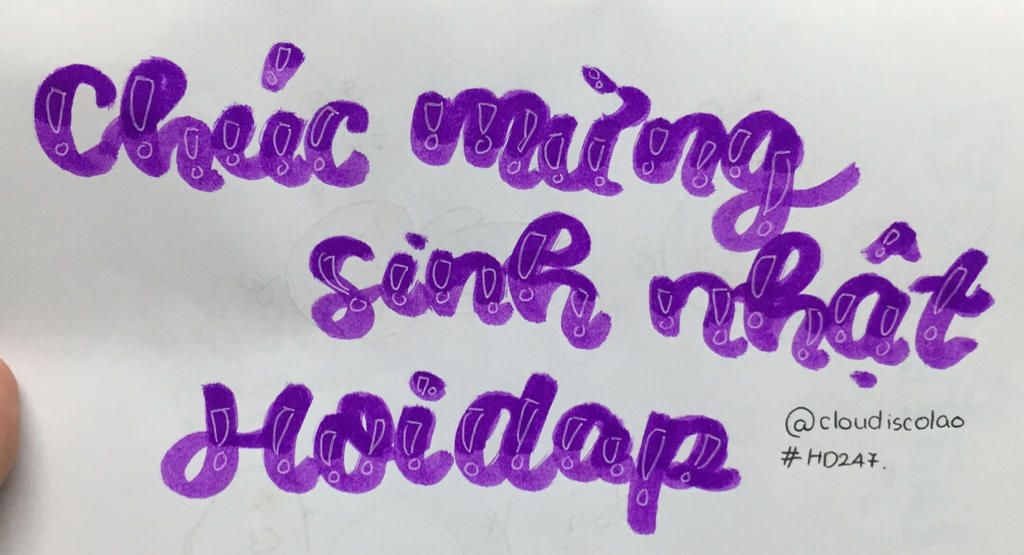 Chúc mừng
sinh nhật
Hoidap
@cloudiscolao
#HD247.